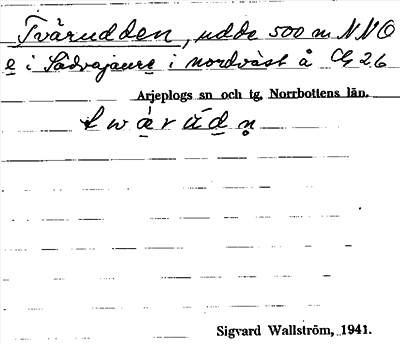 Tvärudden, udde 500 m NNO
e i Sädvajaure i nordväst å Cg 26
Arjeplogs sn och tg, Norrbottens län.
t w æ̀ r ú d n̥
Sigvard Wallström, 1941.